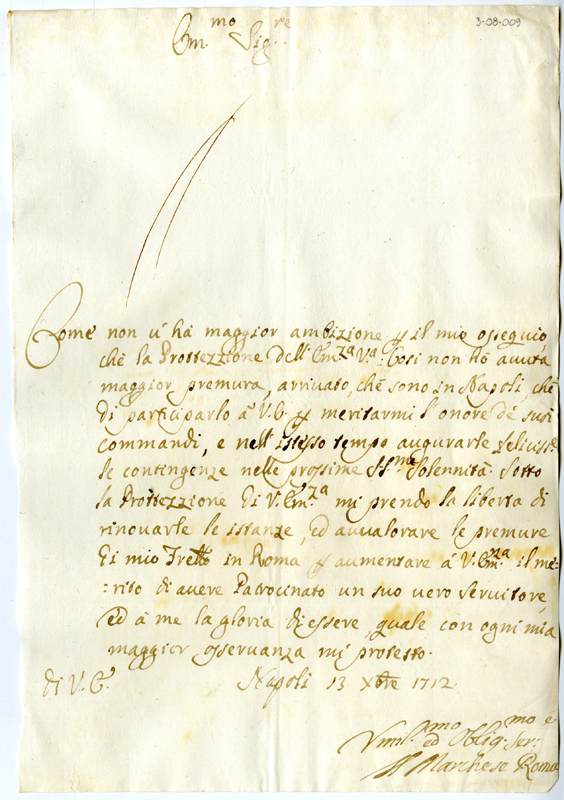 3-08-009
Em.mo Sig.re
Come non v'ha maggior ambizione p il mio ossequio
chè la Prottezzione dell'Em.za V.a Cosi non hò avuta
maggior premura, arrivato, chè sono in Napoli, chè
di participarlo à V.E. p meritarmi l'onore dè suoi
commandi, e nell'istesso tempo augurarle feliciss.e
le contingenze nelle prossime SS.me Solennità. Sotto
la Prottezzione di V. Em.za mi prendo la libertà di
rinovarle le istanze, ed avvalorare le premure
di mio Fretto in Roma p aumentare à V. Em.za il me-
-rito di avere Patrocinato un suo vero servitore,
ed à me la gloria di essere, quale con ogni mia
maggior osservanza mi protesto.
di V.E. Napoli 13 Xbre 1712
Vmil.mo ed Oblig.mo ser.e
Il Marchese Roma